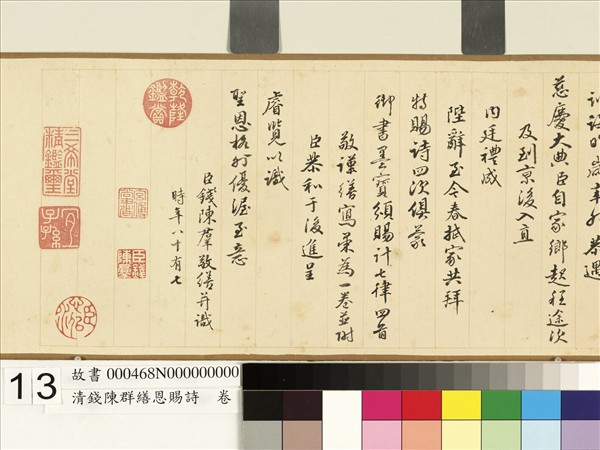 昨歲辛卯恭遇
慈慶大典臣自家鄉起程途次
及到京後入直
內廷禮成
陛辭至今春抵家共拜
特賜詩四次俱蒙
御書墨寶頒賜計七律四首
敬謹繕寫彙為一卷並附
臣恭和于後進呈
睿覽以識
聖恩格外優渥至意
臣錢陳羣敬繕并識
時年八十有七
乾隆鑑賞
臣錢陳羣
三希堂精鑑璽
宜子孫
13
故書 000468N000000000
清錢陳群繕恩賜詩 卷